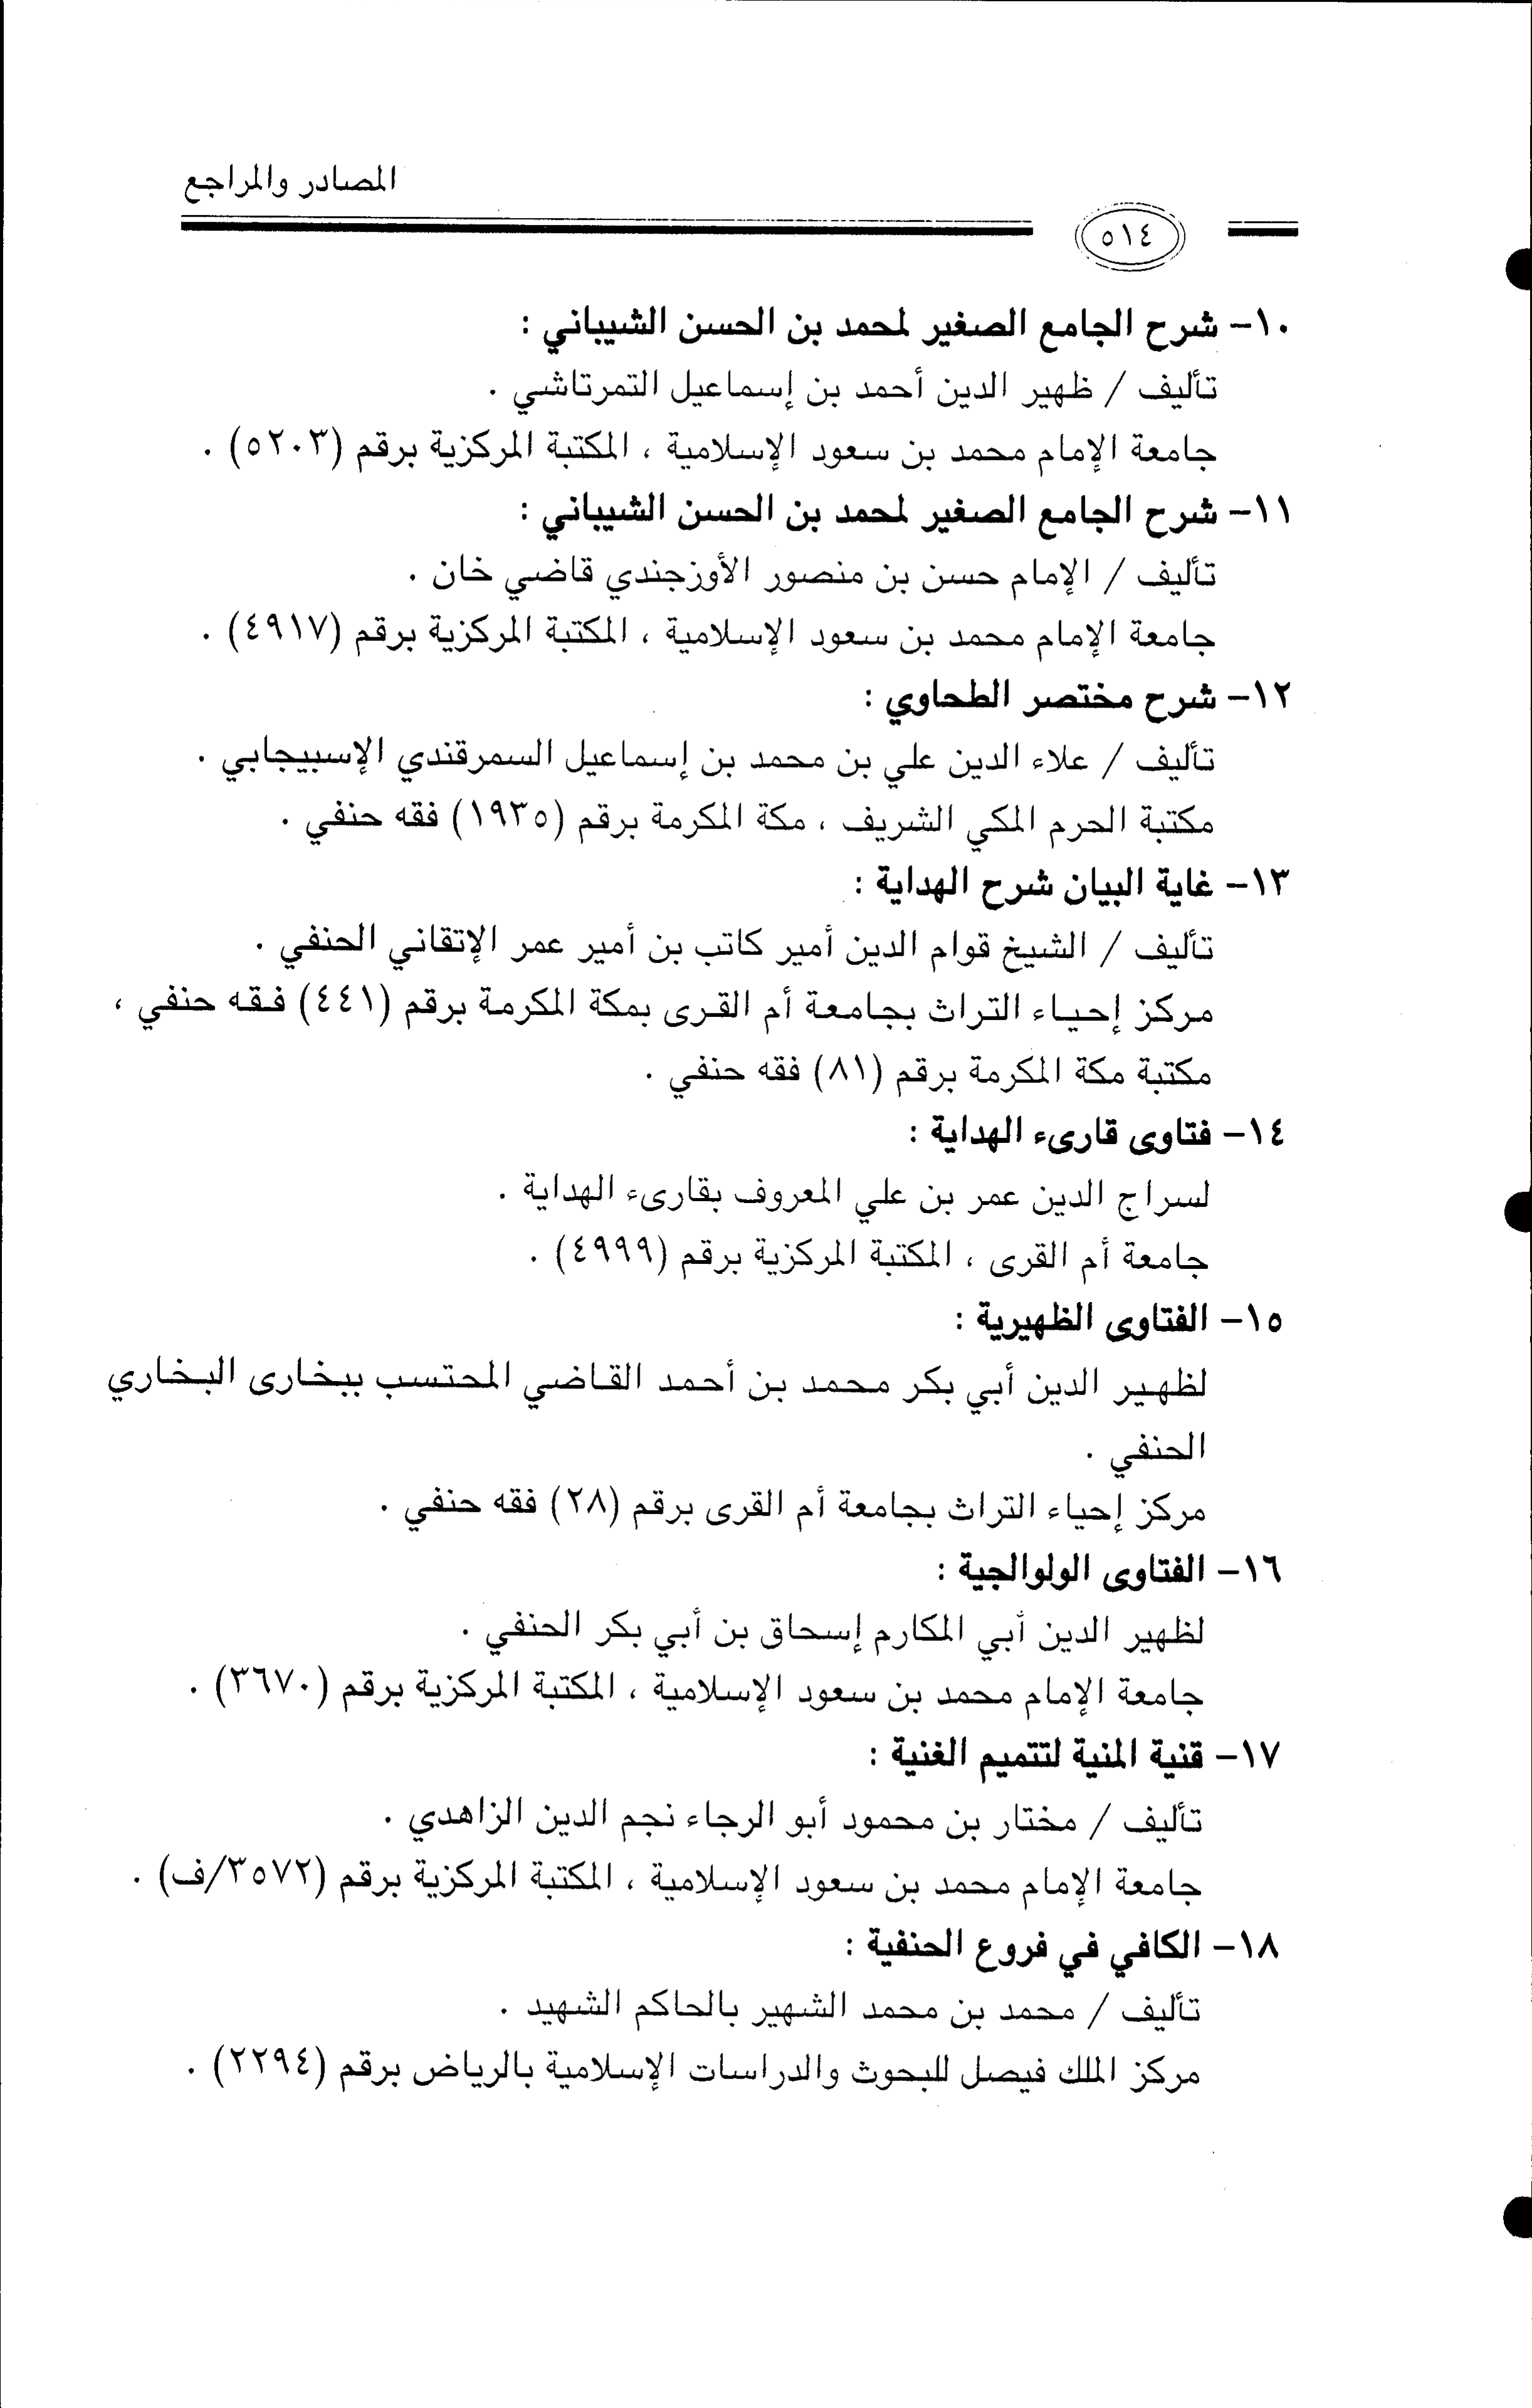 المصادر والمراجع
٥١٤
١٠- شرح الجامع الصغير لمحمد بن الحسن الشيباني :
تأليف / ظهير الدين أحمد بن إسماعيل التمرتاشي .
جامعة الإمام محمد بن سعود الإسلامية ، المكتبة المركزية برقم (٥٢٠٣) .
١١- شرح الجامع الصغير لمحمد بن الحسن الشيباني :
تأليف / الإمام حسن بن منصور الأوزجندي قاضي خان .
جامعة الإمام محمد بن سعود الإسلامية ، المكتبة المركزية برقم (٤٩١٧) .
١٢- شرح مختصر الطحاوي :
تأليف / علاء الدين علي بن محمد بن إسماعيل السمرقندي الإسبيجابي .
مكتبة الحرم المكي الشريف ، مكة المكرمة برقم (١٩٣٥) فقه حنفي .
١٣- غاية البيان شرح الهداية :
تأليف / الشيخ قوام الدين أمير كاتب بن أمير عمر الإتقاني الحنفي .
مركز إحياء التراث بجامعة أم القرى بمكة المكرمة برقم (٤٤١) فقه حنفي ،
مكتبة مكة المكرمة برقم (٨١) فقه حنفي .
١٤- فتاوى قارىء الهداية :
لسراج الدين عمر بن علي المعروف بقارىء الهداية .
جامعة أم القرى ، المكتبة المركزية برقم (٤٩٩٩) .
١٥- الفتاوى الظهيرية :
لظهير الدين أبي بكر محمد بن أحمد القاضي المحتسب ببخارى البخاري
الحنفي .
مركز إحياء التراث بجامعة أم القرى برقم (٢٨) فقه حنفي .
١٦- الفتاوى الولوالجية :
لظهير الدين أبي المكارم إسحاق بن أبي بكر الحنفي .
جامعة الإمام محمد بن سعود الإسلامية ، المكتبة المركزية برقم (٣٦٧٠) .
١٧- قنية المنية لتتميم الغنية :
تأليف / مختار بن محمود أبو الرجاء نجم الدين الزاهدي .
جامعة الإمام محمد بن سعود الإسلامية ، المكتبة المركزية برقم (٣٥٧٢/ف) .
١٨- الكافي في فروع الحنفية :
تأليف / محمد بن محمد الشهير بالحاكم الشهيد .
مركز الملك فيصل للبحوث والدراسات الإسلامية بالرياض برقم (٢٢٩٤) .